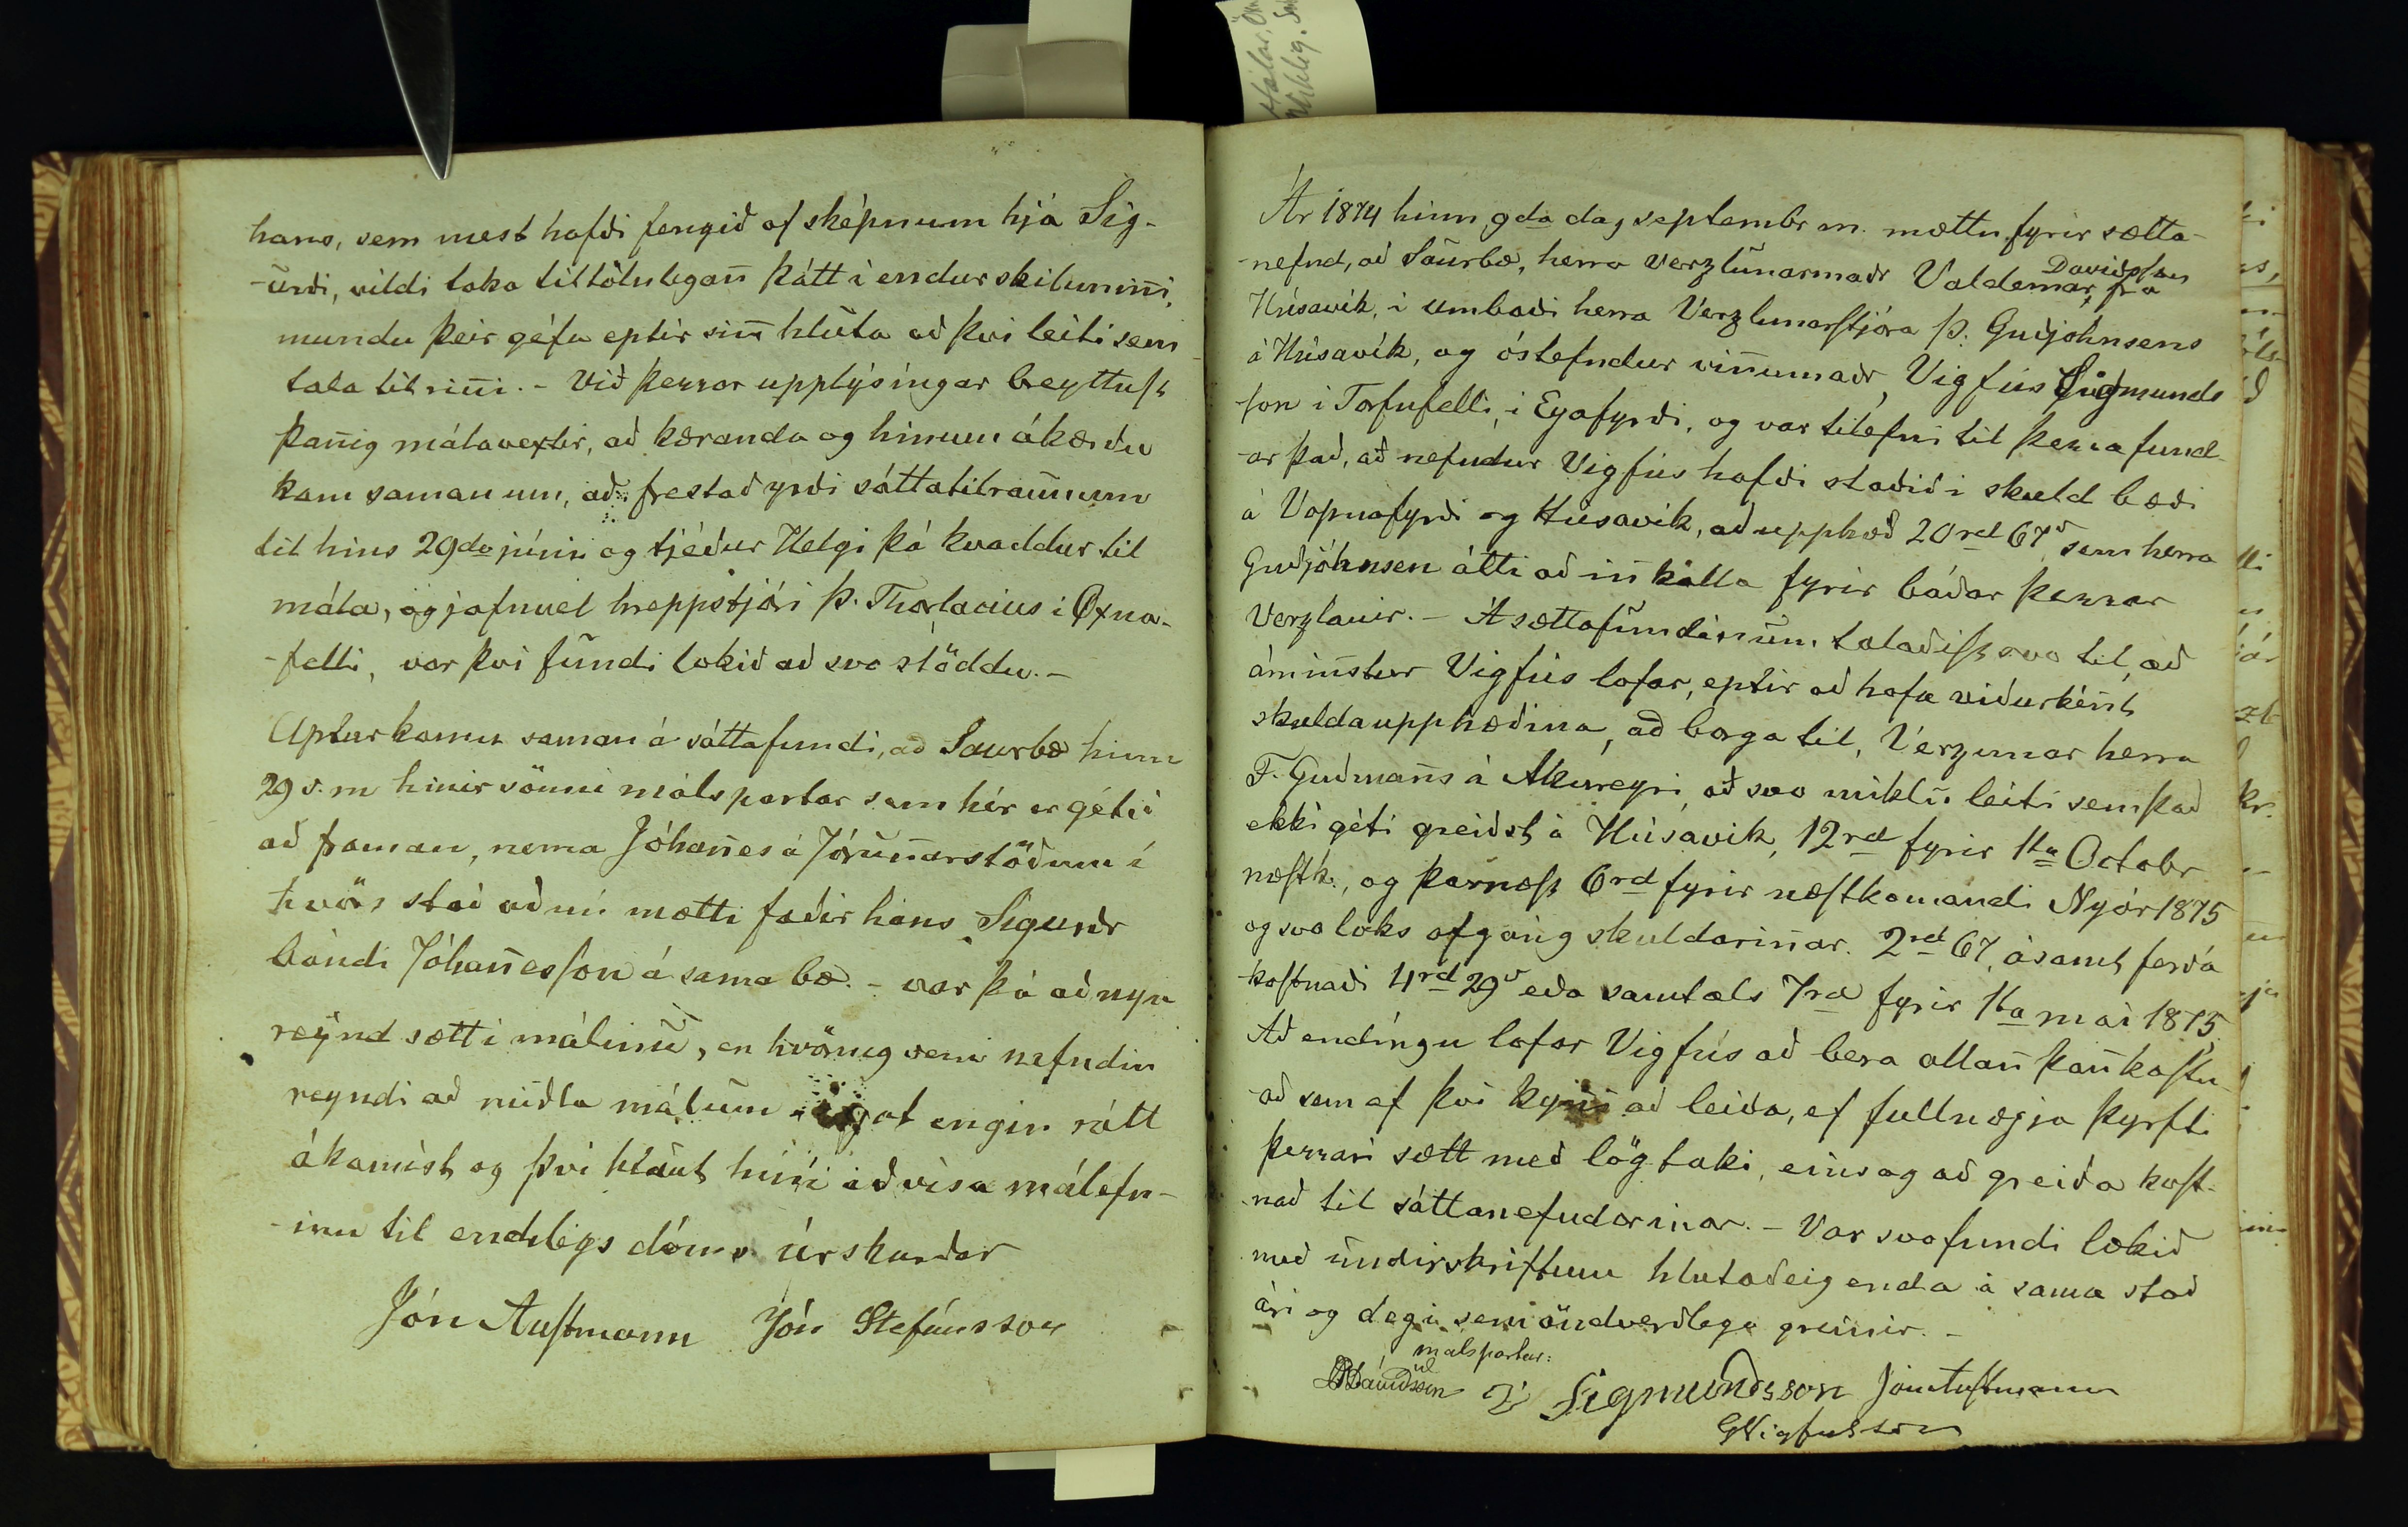 hans, sem mest hafði fengið af sképnum hjá Sig-
-urði, vildi taka tiltölulegan̄ þátt í endurskilunin̄i,
mundu þeir géfa eptir sin̄ hluta að því leiti sem
tala til rin̄i. - Við þessar upplýsíngar breyttust
þan̄ig málavextir, að kæranda og hinum ákærðu
kom saman um, að frestað yrði sáttatilraunum
til hins 29da júní og tjéður Helgi þá kvaddur til
mála, og jafnvel hreppstjóri Þ. Thorlacius í Øxna-
-felli, var því fundi lokið að svo stöddu. -
Aptur komu saman á sáttafundi, að Saurbæ hinn
29 s. m hinir sömu málspartar sem hér er gétið
að framan, nema Jóhan̄es á Jórun̄arstöðum í
hvörs stað að nú mætti faðir hans Sigurðr
bóndi Jóhan̄esson á sama bæ. - var þá að nyu
reynd sætt í málinu, en hvörnig sem nefndin
reyndi að miðla málum gat engin sátt
ákomist og því hlaut hún að vísa málefn-
-inu til endilegs dóms úrskurðar
Jón Austmann Jón Stefánsson
Ár 1874 hinn 9da dag septembr m. mættu fyrir sætta-
-nefnd, að Saurbæ, herra verzlunarmaðr Valdemar Davidsson frá
Húsavík, í umboði herra Verzlunarstjóra Þ. Guðjohnsens
á Húsavík, og óstefndur vin̄umaðr Vigfús Sigmunds
-son í Torfufelli, í Eyafyrði, og var tilefni til þessa fund-
-ar það, að nefndur Vigfús hafði staðið í skuld bæði
á Vopnafyrði og Húsavík, að upphæð 20rd 67s sem herra
Guðjóhnsen átti að in̄kalla fyrir báðar þessar
Verzlanir. - Á sættafundinum talaðist svo til, að
áminstur Vigfús lofar, eptir að hafa viðurkén̄t
skuldaupphæðina, að borga til, Verzunar herra
F. Guðman̄s á Akureyri, að svo miklu leiti sem það
ekki géti greiðst á Húsavík, 12rd fyrir 1ta Octobr
næstk., og þarnæst 6rd fyrir næstkomandi Nyár 1875
og svo loks afgáng skuldarin̄ar. 2rd 67, ásamt ferða
kostnaði 4rd 29s eða samtals 7rd fyrir 1ta mai 1875
Að endíngu lofar Vigfús að bera allan̄ þan̄ kostn-
-að sem af því kyn̄i að leiða, ef fullnægja þyrfti
þessari sætt með lögtaki, eins og að greiða kost-
-nað til sáttanefndarinar. - Var svo fundi lokið
með undirskriftum hlutaðeigenda á sama stað
ári og degi sem öndverðlega greinir. -
málspartar:
Davidsson V Sigmundsson Jón Austmann
GVigfússon